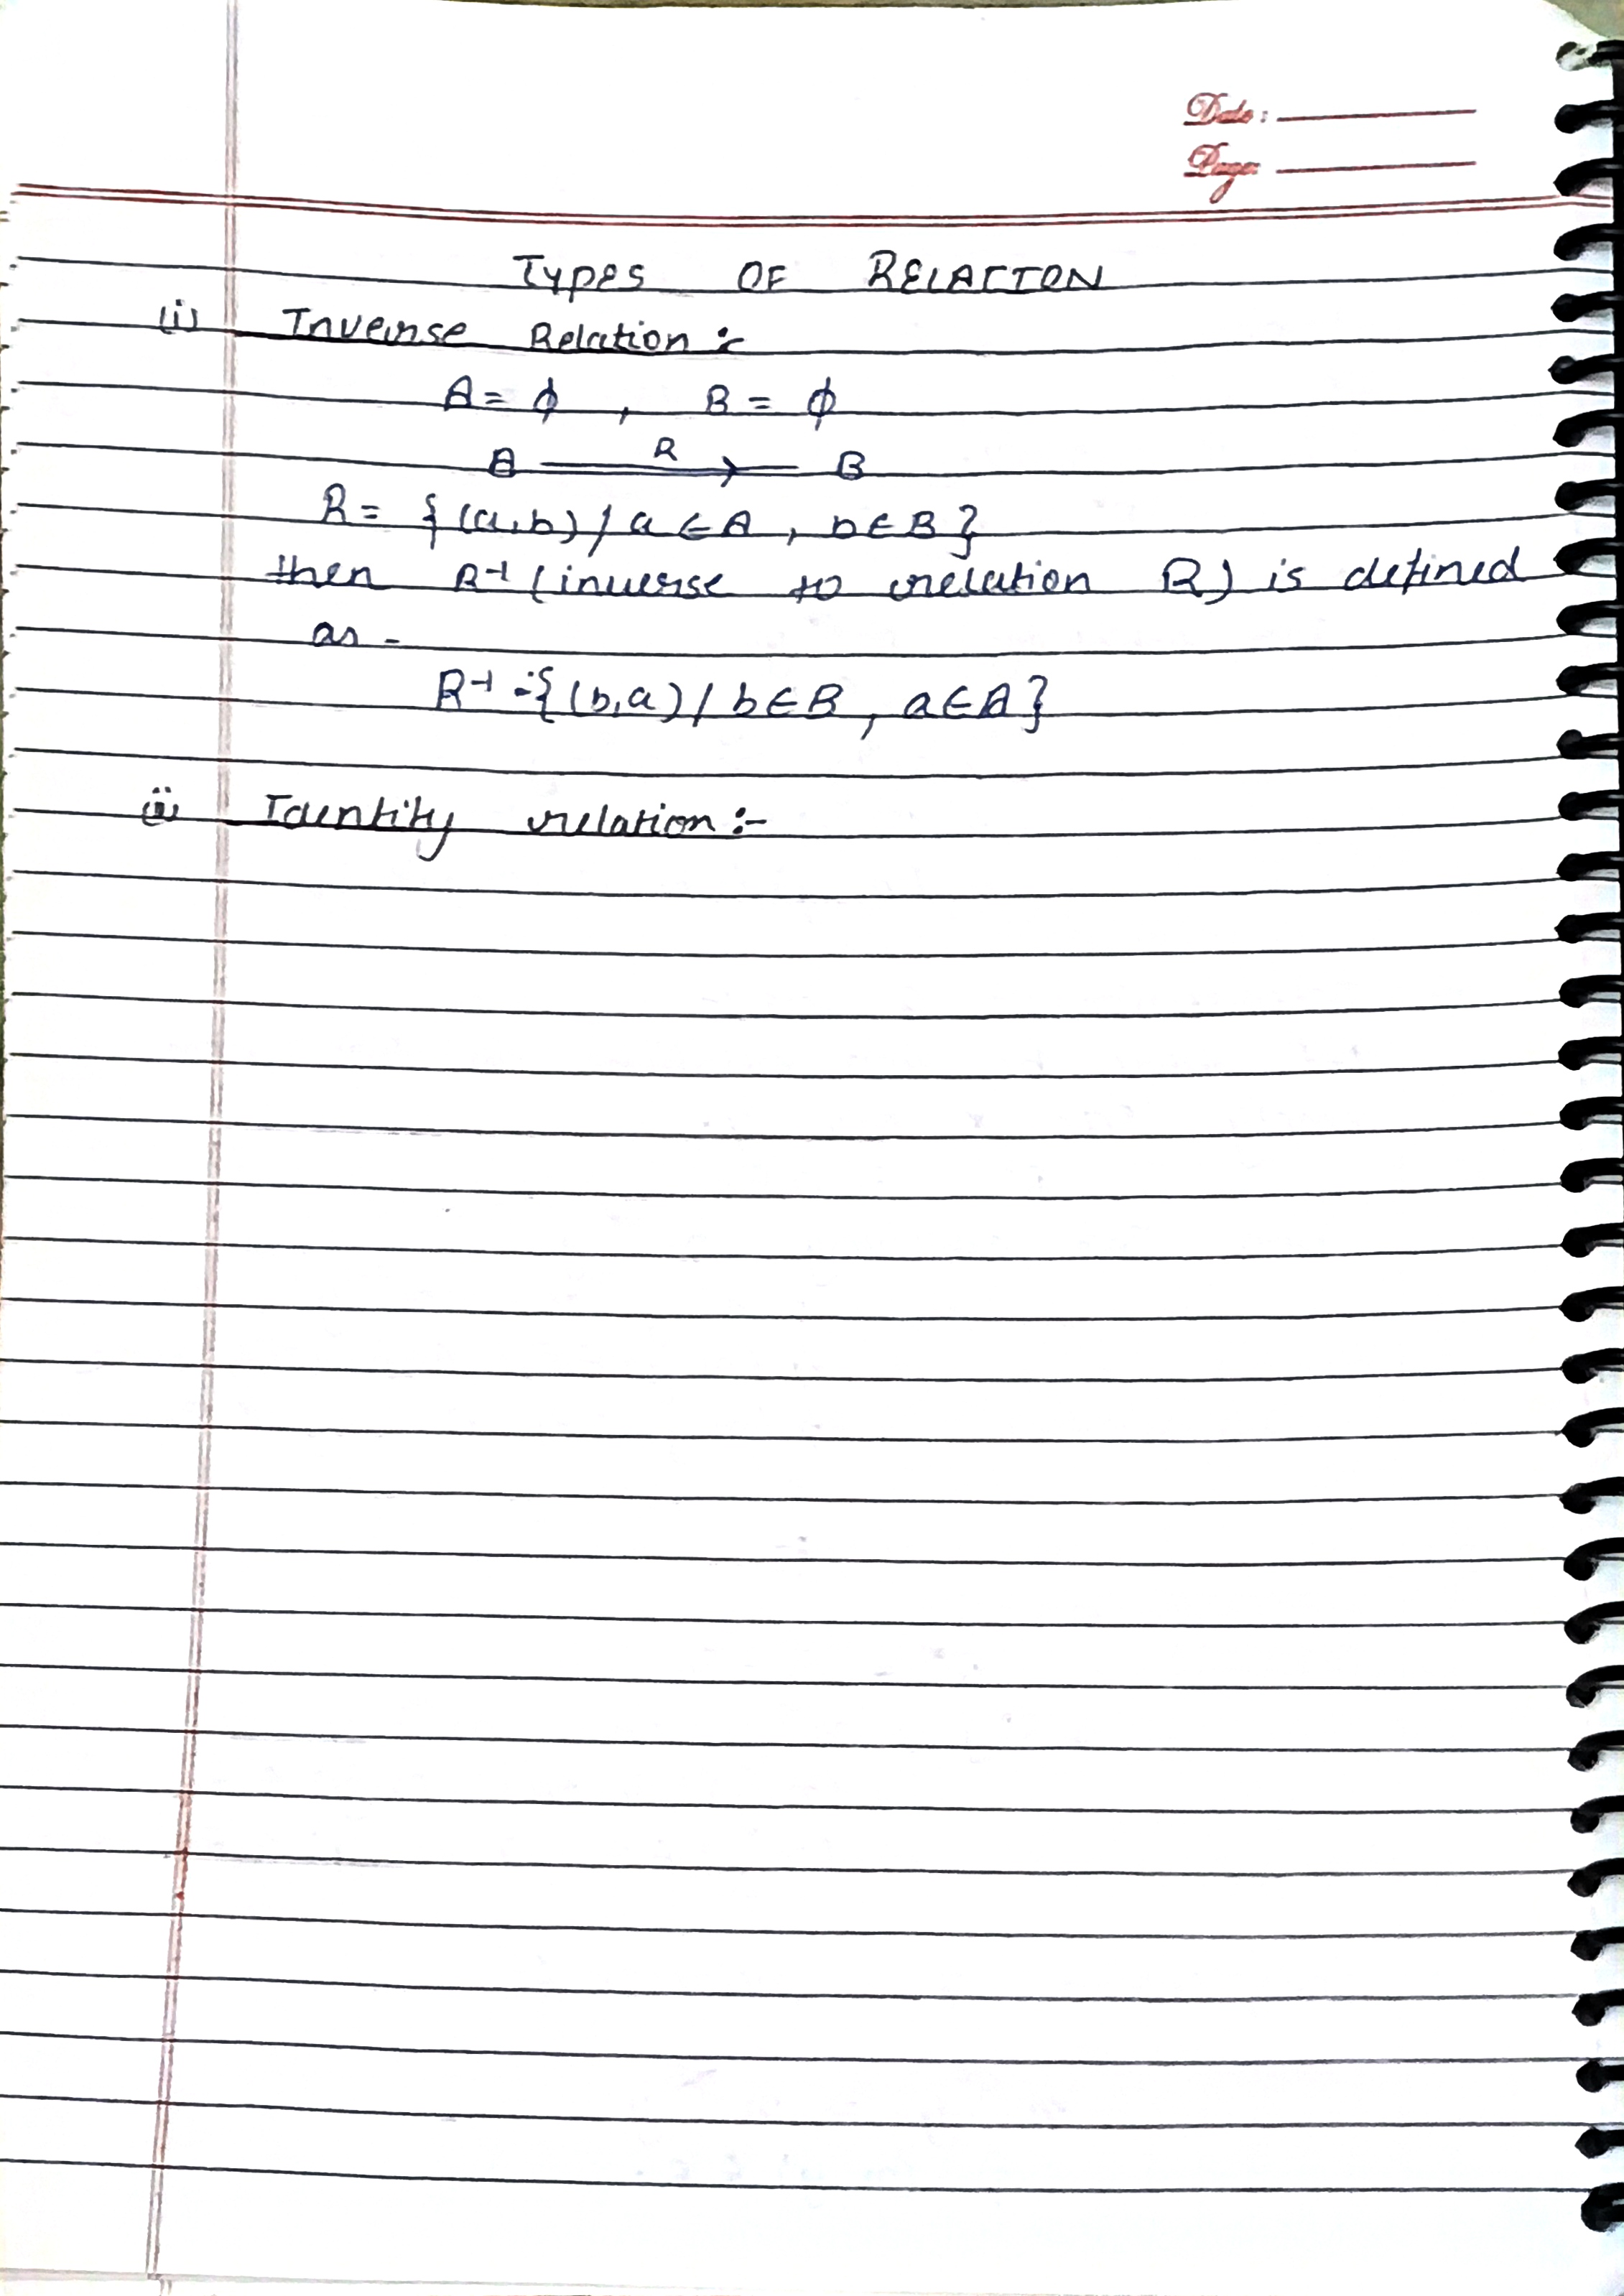 Date:
Page:
TYPES OF RELATION
(i) Inverse Relation :-
A = ϕ , B = ϕ
A R B
R = {(a,b) / a ∈ A , b ∈ B}
then R⁻¹ (inverse to relation R) is defined
as -
R⁻¹ = {(b,a) / b ∈ B , a ∈ A}
(ii) Identity relation :-